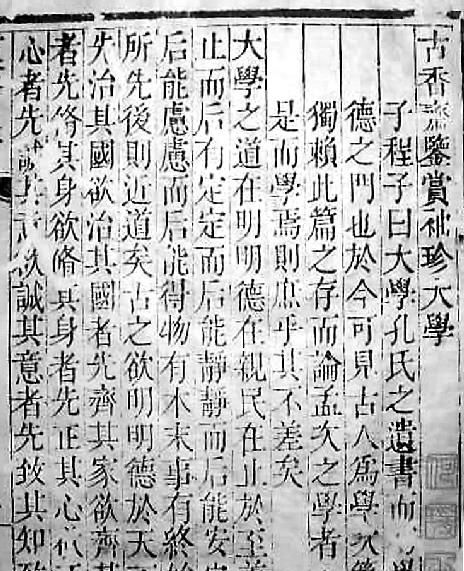 古香齋鑒賞袖珍大學
子程子曰大學孔氏之遺書而學
德之門也於今可見古人爲學次第
獨賴此篇之存而論孟次之學者
是而學焉則庶乎其不差矣
大學之道在明明德在親民在止於至
止而后有定定而后能靜靜而后能安
后能慮慮而后能得物有本末事有終始
所先後則近道矣古之欲明明德於天
先治其國欲治其國者先齊其家欲齊其
者先脩其身欲脩其身者先正其心欲正
心者先誠其意欲誠其意者先致其知致